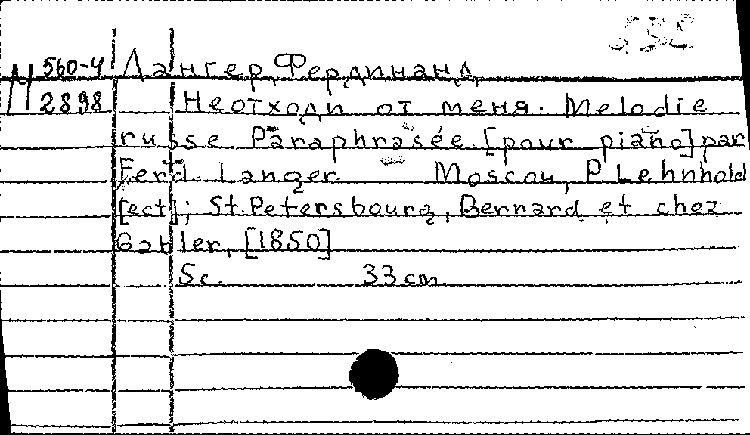 М 560-4 Лангер, Фердинанд
2898 Не отходи от меня. Melodie
russe Paraphrasée. [pour piano] par
Ferd. Langer. Moscou, P. Lehnhold
[ect]; St. Petersbourg, Bernard et chez
Gabler, [1850]
5c. 33 cm